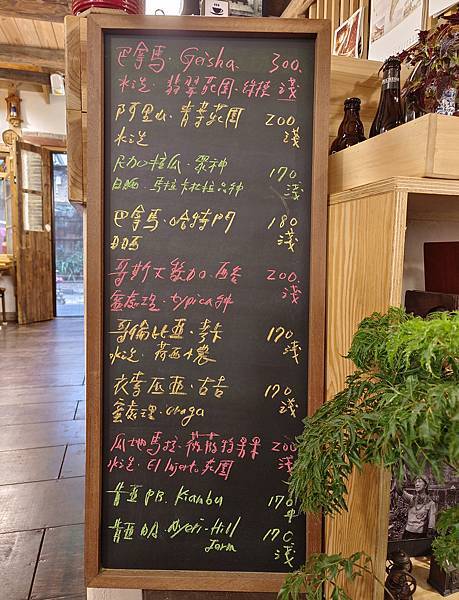 巴拿馬·Geisha. 300.
水洗·翡翠莊園·綠標 淺
阿里山·青葉莊園 200
水洗 淺
尼加拉瓜·眾神 170
日晒·馬拉卡杜拉品种 淺
巴拿馬·哈特門 180
日晒 淺
哥斯大黎加· 200.
蜜處理·typica种 淺
哥倫比亞·考卡 170
水洗·荷西小農 淺
衣索匹亞·古吉 170.
蜜處理·uraga 淺
瓜地馬拉·薇薇特南果 200
水洗·El Injerto莊園 淺
肯亞PB. Kiambu 170
中
肯亞 Nyeri-Hill 170.
Farm 淺